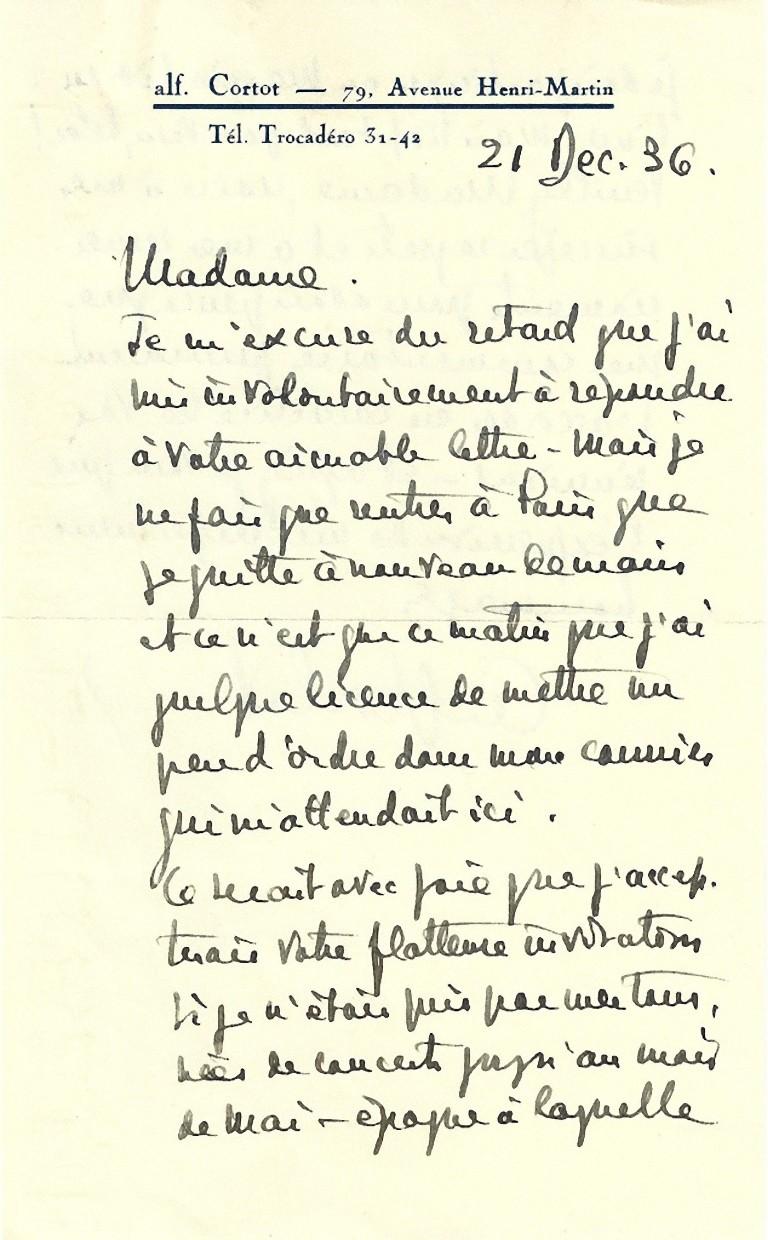 alf. Cortot — 79, Avenue Henri-Martin
Tél. Trocadéro 31-42
21 Dec. 36.
Madame.
Je m'excuse du retard que j'ai
mis involontairement à répondre
à votre aimable lettre - Mais je
ne fais que rentrer à Paris que
je quitte à nouveau demain
et ce n'est que ce matin que j'ai
quelque licence de mettre un
peu d'ordre dans mon courrier
qui m'attendait ici.
Ce serait avec joie que j'accep-
terais votre flatteuse invitation
si je n'étais pris par mes tour-
nées de concerts jusqu'au mois
de Mai - époque à laquelle